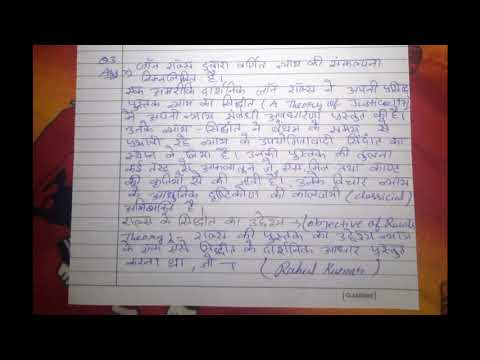 Q3
Ans → जॉन रॉल्स द्वारा वर्णित न्याय की संकल्पना
निम्नलिखित है।
एक अमरीकि दार्शनिक जॉन रॉल्स ने अपनी प्रसिद्ध
पुस्तक न्याय का सिद्धांत (A Theory of Justice)
में अपनी न्याय संबंधी अवधारणा प्रस्तुत की है।
उनके न्याय-सिद्धांत ने बेंथम के समय से
प्रभावी रहे न्याय के उपयोगितावादी सिद्धांत का
स्थान ले लिया है। उनकी पुस्तक की तुलना
कई तरह से मिल तथा काण्ट
की कृतियों से की जाती है। उनके विचार न्याय
के आधुनिक दृष्टिकोण की कालजयी (classical)
अभिव्यक्ति है।
राल्स के सिद्धांत का उद्देश्य → (objective of Rawls
Theory) → राल्स की पुस्तक का उद्देश्य न्याय
के एक ऐसे सिद्धांत के दार्शनिक आधार प्रस्तुत
करना था, जो →
(Rahul Kumar)
CLASSMATE